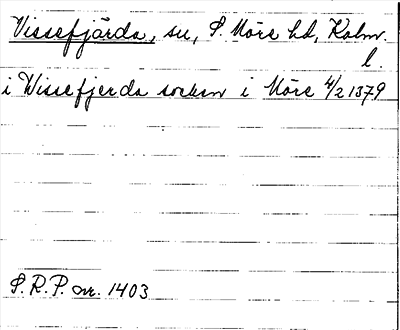 Vissefjärda, sn, S. Möre hd, Kalm.
l.
i Wissefjerda socken i Möre 4/2 1379
S.R.P. nr. 1403